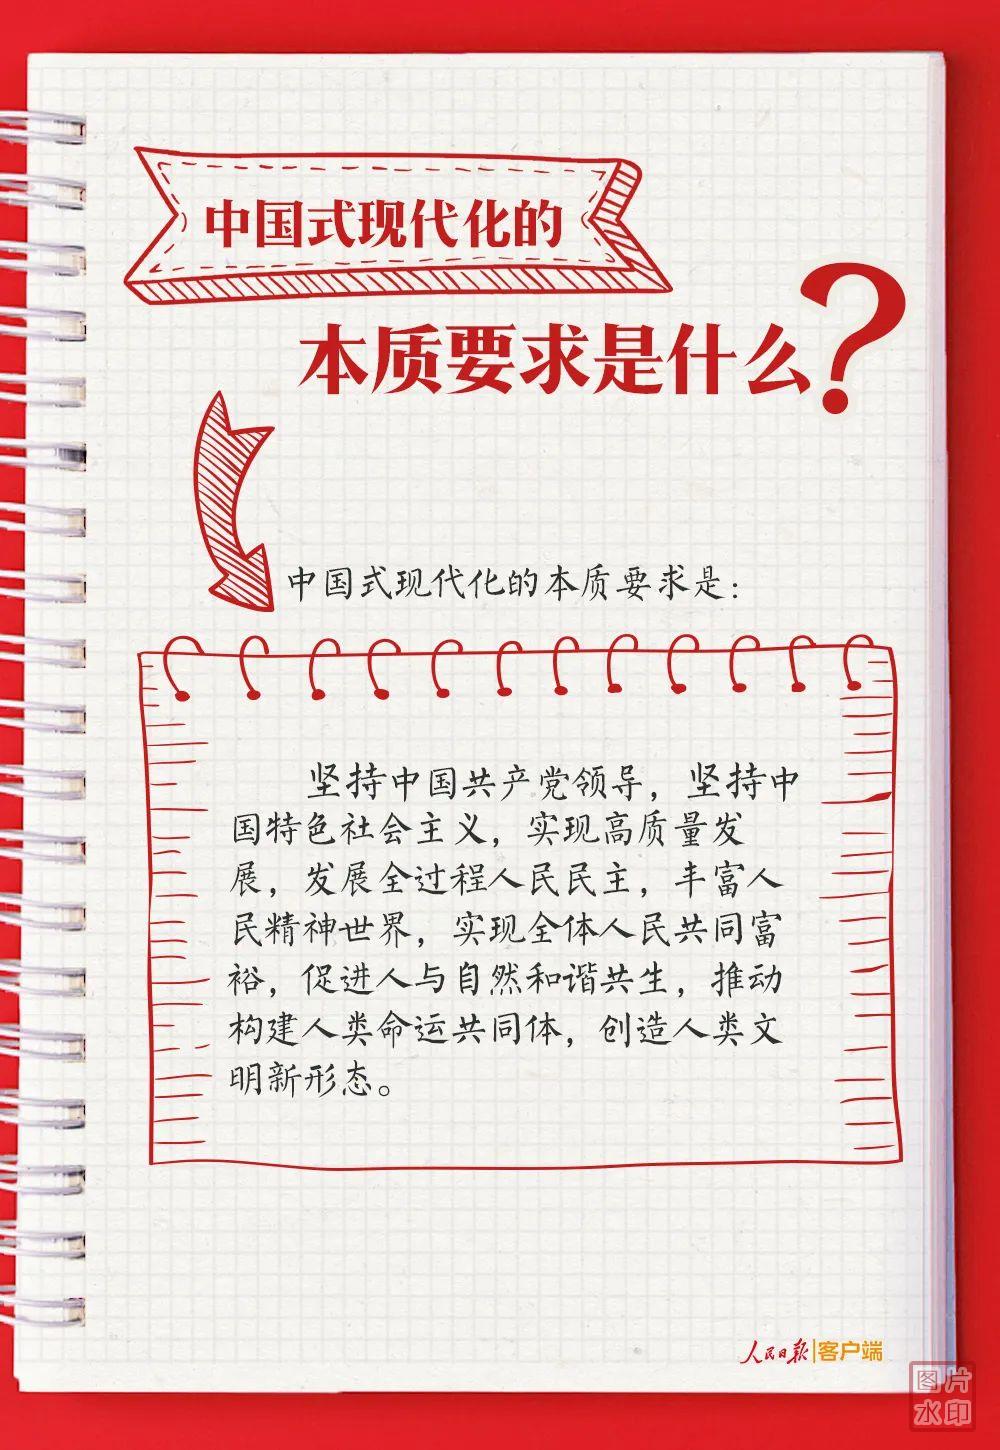 中国式现代化的
本质要求是什么?
中国式现代化的本质要求是:
坚持中国共产党领导，坚持中
国特色社会主义，实现高质量发
展，发展全过程人民民主，丰富人
民精神世界，实现全体人民共同富
裕，促进人与自然和谐共生，推动
构建人类命运共同体，创造人类文
明新形态。
人民日报|客户端
图片
水印